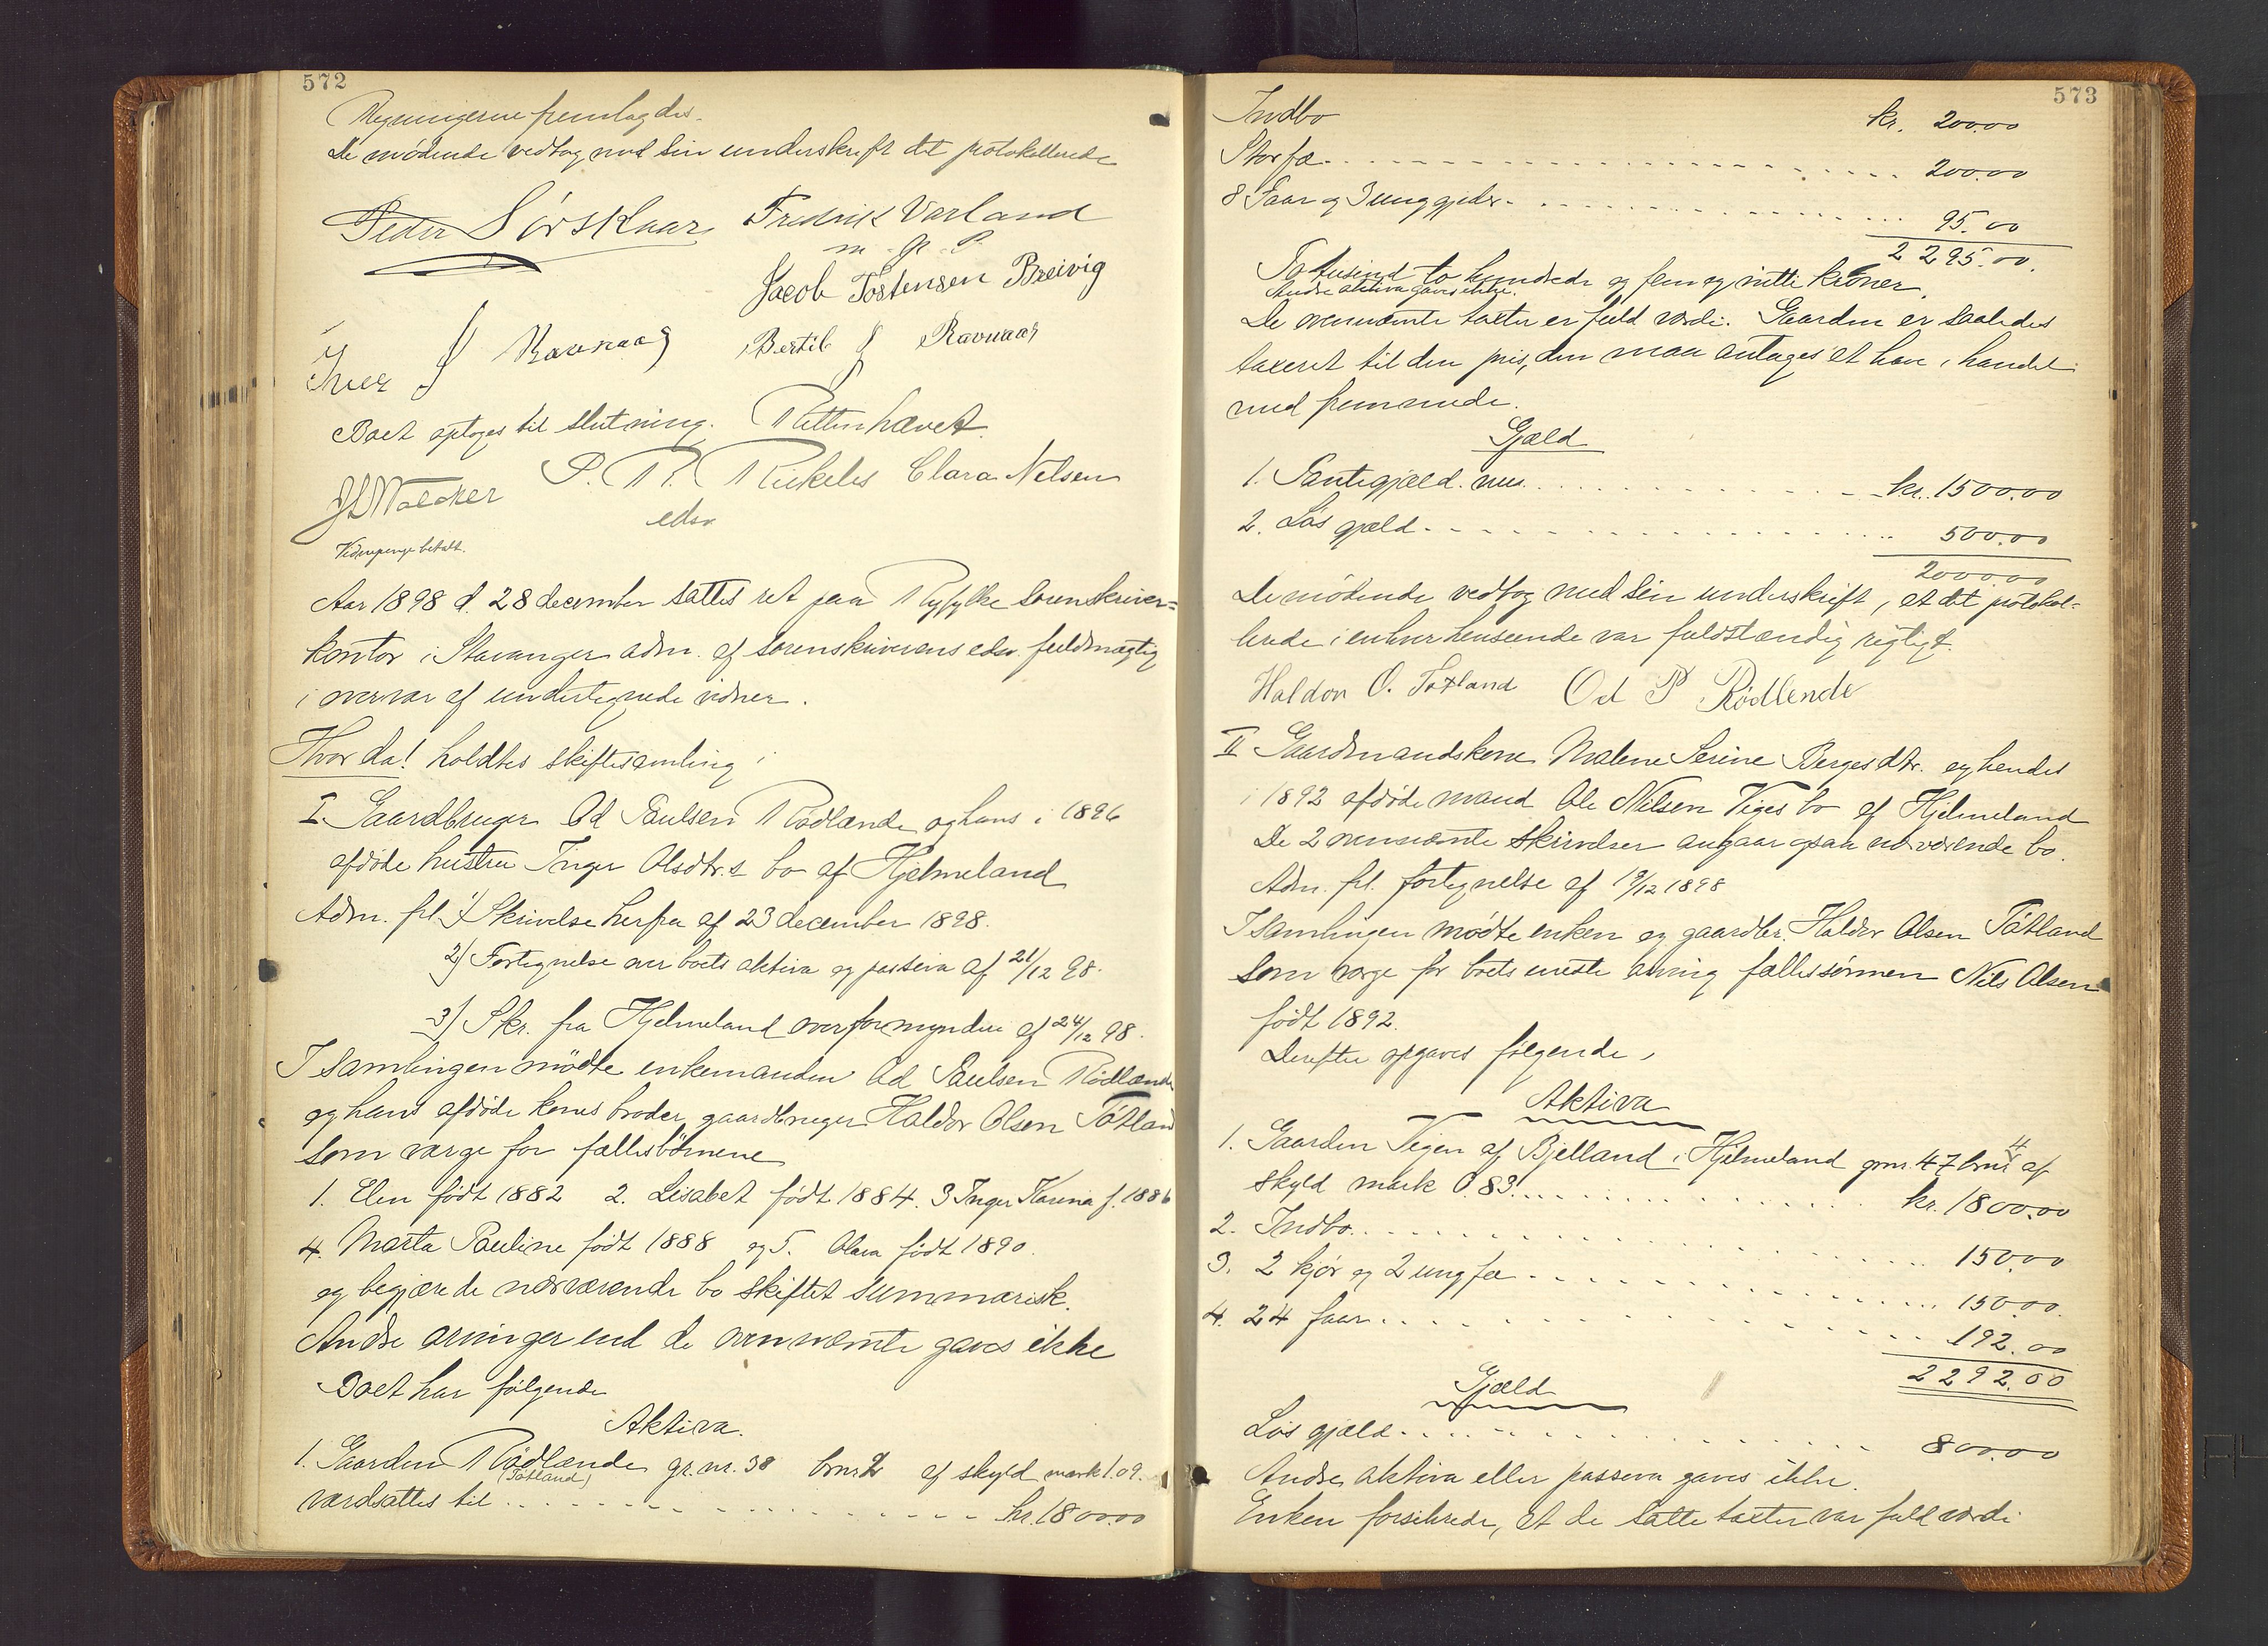 572
Regningerne fremlagdes.
De mødende vedtog med sin underskrift det protokollerede
Peder Sørskaar Fredrik Varland
m. p. P.
Jacob Tostensen Breivig
Iver J Ravnaas Bertil J Ravnaas
Boet optoges til slutning. Retten hævet.
P. R. Rickeles Clara Nelsen
edsv.
Vidnepenge betalt.
Aar 1898 d. 28 december sattes ret paa Ryfylke sorenskriver=
kontor i Stavanger adm. af sorenskriverens edsv. fuldmægtig
i overvær af undertegnede vidner.
Hvor da! holdtes skiftesamling i
I. Gaardbruger Od Paulsen Rødlænde og hans i 1896
afdøde hustru Inger Olsdtr.s bo af Hjelmeland
Adm. frl. 1) Skrivelse herfra af 23 december 1898.
2) Fortegnelse over boets aktiva og passiva af 21/12 98.
3) Skr. fra Hjelmeland overformynderi af 24/12 98.
I samlingen mødte enkemanden Od Paulsen Rødlænde
og hans afdøde kones broder, gaardbruger Haldor Olsen Tøtland
som værge for fællesbørnene
1. Elen født 1882 2. Lisabet født 1884. 3 Inger Karina f. 1886
4. Marta Pauline født 1888 og 5. Olava født 1890.
og begjærede nærværende bo skiftet summarisk.
Andre arvinger end de ovennævnte gaves ikke
Boet har følgende
Aktiva.
1. Gaarden Rødlænde gr.nr. 38 brnr 2 af skyld mark 1.09.
(Tøtland)
værdsattes til kr. 1800.00
573
Indbo kr. 200.00
Storfæ 200.00
8 Faar og 3 unggjeder 95.00
2 295.00.
To tusind to hundrede og fem og nitti kroner.
Andre aktiva gaves ikke.
De ovennævnte taxter er fuld værdi. Gaarden er saaledes
taxeret til den pris, den maa antages at have i handel
med fremmede.
Gjæld
1. Pantegjæld kr. 1500.00
2. Løs gjæld 500.00
2000.00
De mødende vedtog med sin underskrift, at det protokol=
lerede i enhver henseende var fuldstændig rigtigt.
Haldor O. Tøtland Od P Rødlende
II Gaardmandskone Malene Serine Bergesdtr. og hendes
i 1892 afdøde mand Ole Nilsen Viges bo af Hjelmeland
De 2 ovennævnte skrivelser angaar ogsaa nærværende bo.
Adm. frl. fortegnelse af 19/12 1898
I samlingen mødte enken og gaardbr. Haldor Olsen Tøtland
som værge for boets eneste arving fællessønnen Nils Olsen
født 1892.
Derefter opgaves følgende
Aktiva
1. Gaarden Vegen af Bjelland i Hjelmeland gnr. 47 brnr 4 af
skyld mark 0.83 kr. 1800.00
2. Indbo 150.00
3. 2 kjør og 2 ungfæ 150.00.
4. 24 faar 192.00
2 292.00
Gjæld
Løs gjæld 800.00
Andre aktiva eller passiva gaves ikke.
Enken forsikrede, at de satte taxter var fuld værdi